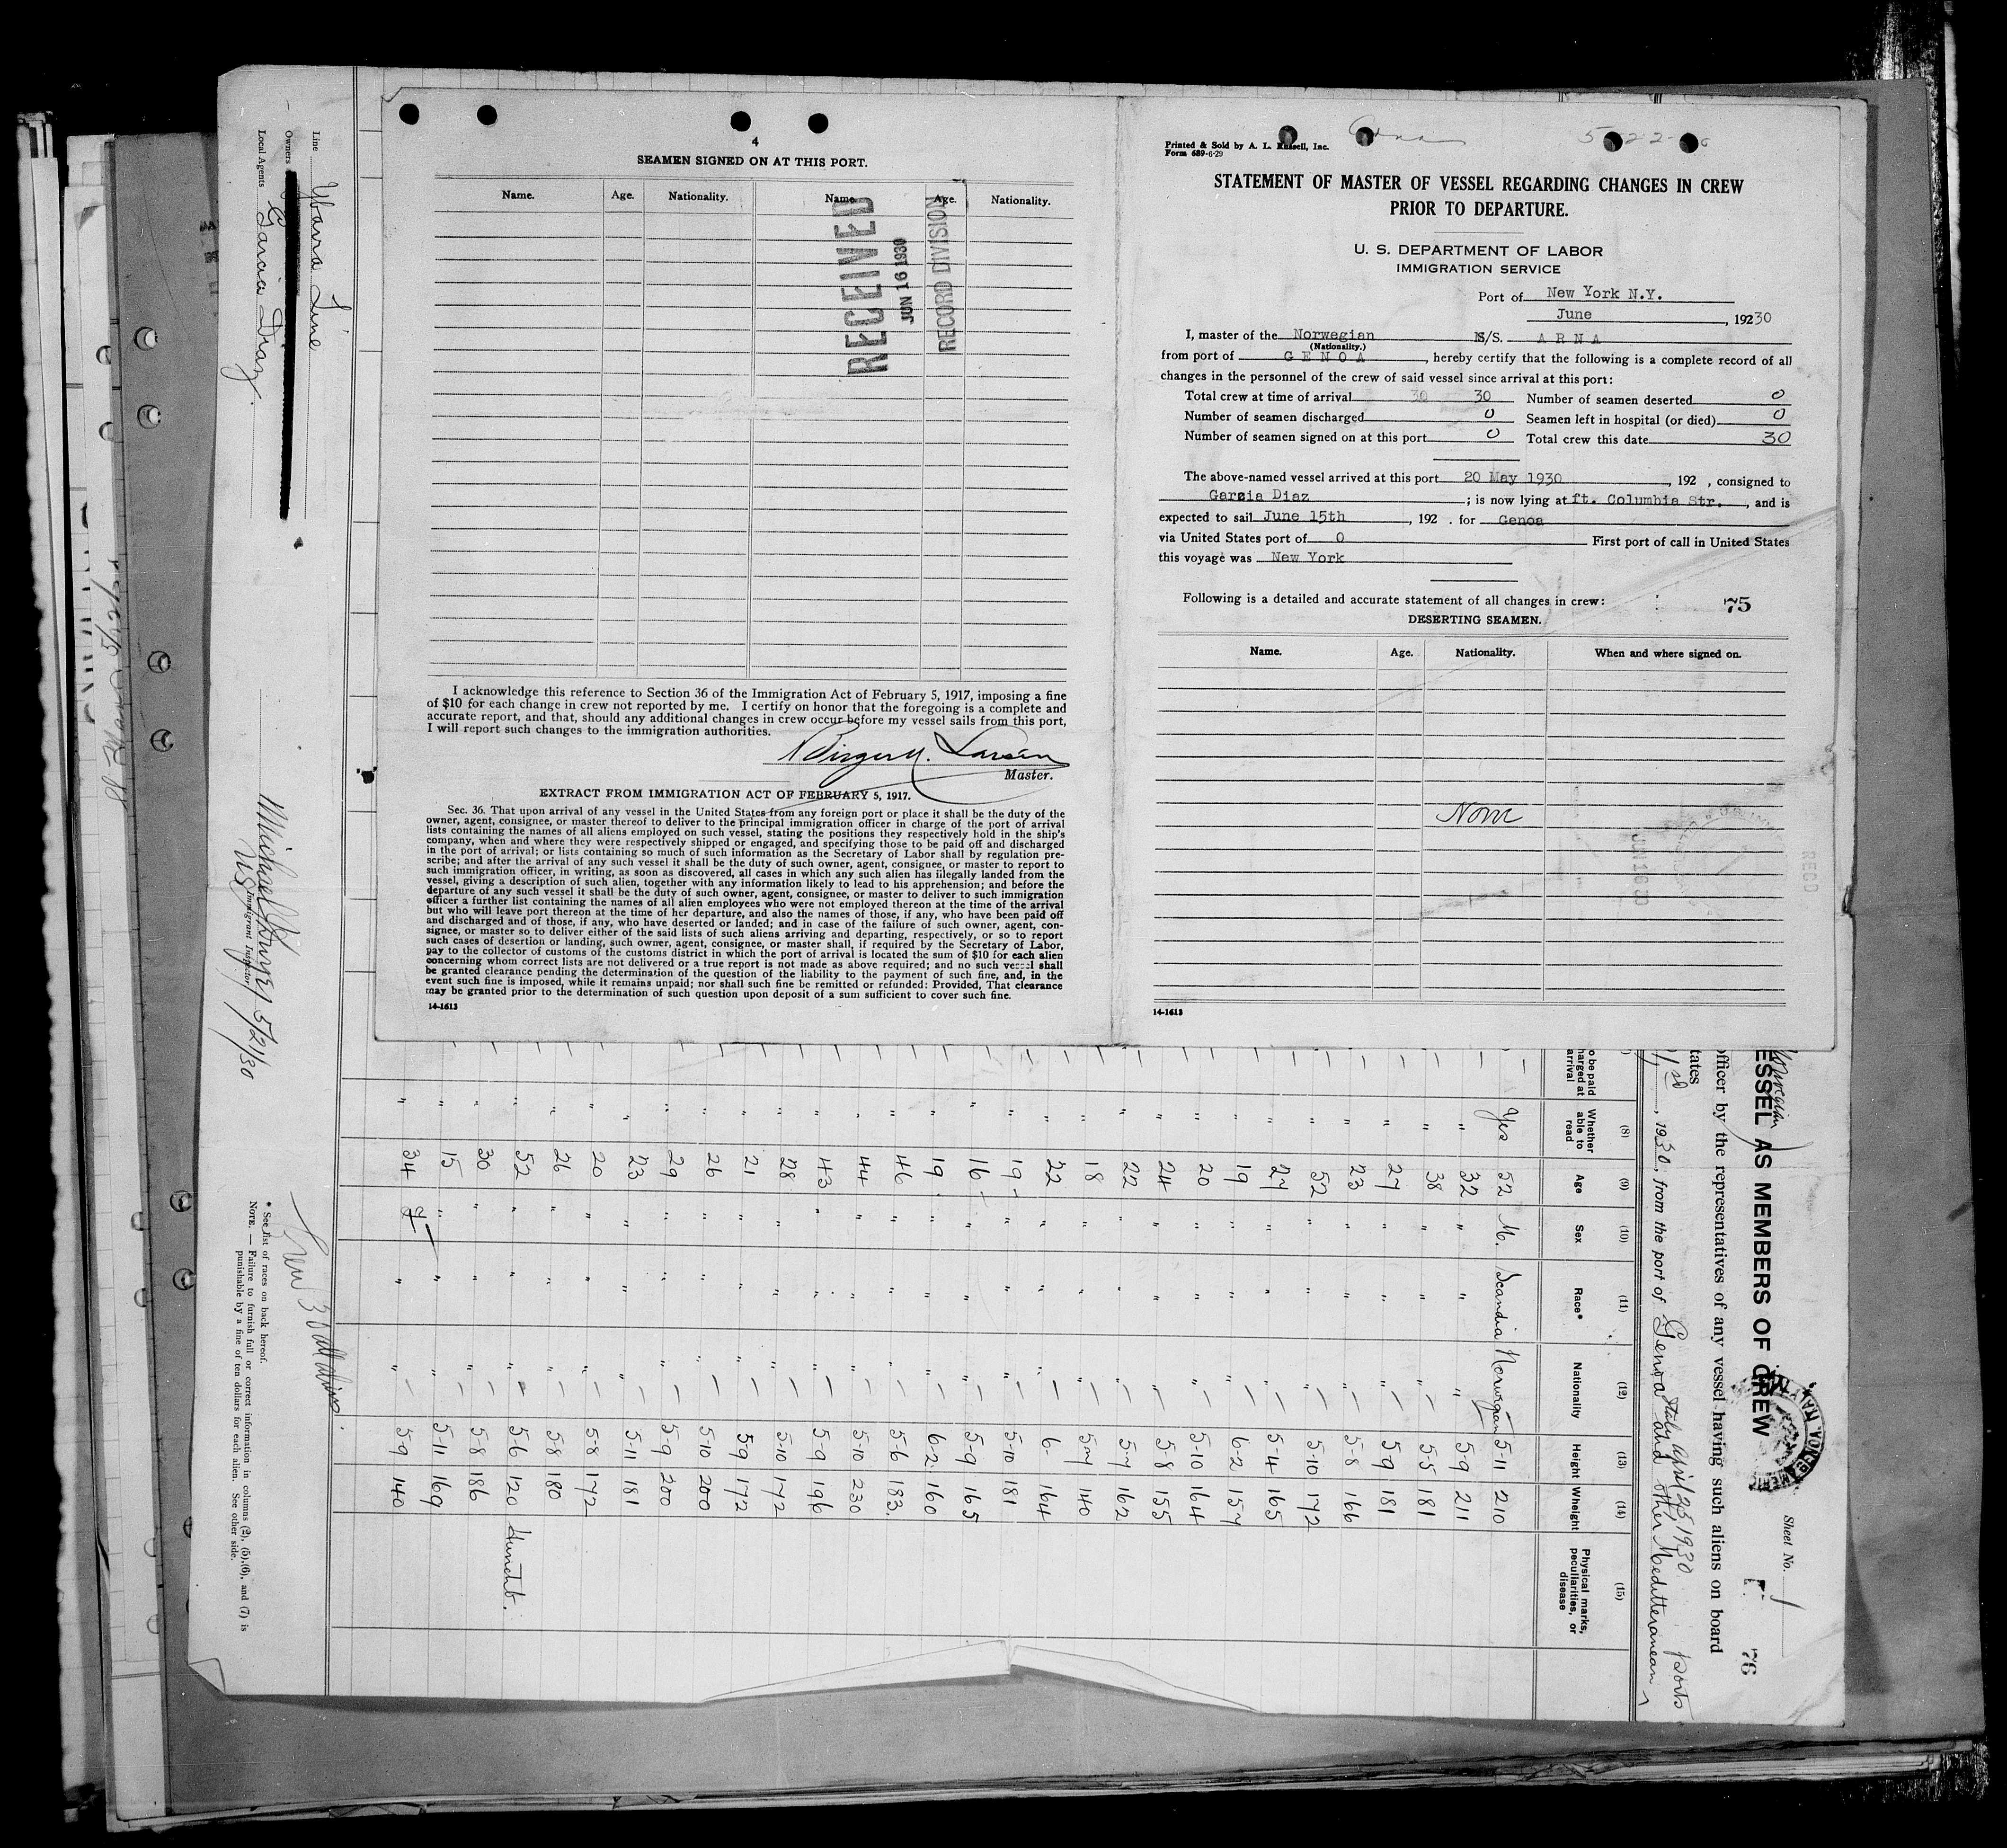 4
SEAMEN SIGNED ON AT THIS PORT.
Name. Age. Nationality. Name. Age. Nationality.
RECEIVED
JUN 16 1930
RECORD DIVISION
I acknowledge this reference to Section 36 of the Immigration Act of February 5, 1917, imposing a fine
of $10 for each change in crew not reported by me. I certify on honor that the foregoing is a complete and
accurate report, and that, should any additional changes in crew occur before my vessel sails from this port,
I will report such changes to the immigration authorities.
Birger M. Larsen
Master.
EXTRACT FROM IMMIGRATION ACT OF FEBRUARY 5, 1917.
Sec. 36. That upon arrival of any vessel in the United States from any foreign port or place it shall be the duty of the
owner, agent, consignee, or master thereof to deliver to the principal immigration officer in charge of the port of arrival
lists containing the names of all aliens employed on such vessel, stating the positions they respectively hold in the ship's
company, when and where they were respectively shipped or engaged, and specifying those to be paid off and discharged
in the port of arrival; or lists containing so much of such information as the Secretary of Labor shall by regulation pre-
scribe; and after the arrival of any such vessel it shall be the duty of such owner, agent, consignee, or master to report to
such immigration officer, in writing, as soon as discovered, all cases in which any such alien has illegally landed from the
vessel, giving a description of such alien, together with any information likely to lead to his apprehension; and before the
departure of any such vessel it shall be the duty of such owner, agent, consignee, or master to deliver to such immigration
officer a further list containing the names of all alien employees who were not employed thereon at the time of the arrival
but who will leave port thereon at the time of her departure, and also the names of those, if any, who have been paid off
and discharged and of those, if any, who have deserted or landed; and in case of the failure of such owner, agent, con-
signee, or master so to deliver either of the said lists of such aliens arriving and departing, respectively, or so to report
such cases of desertion or landing, such owner, agent, consignee, or master shall, if required by the Secretary of Labor,
pay to the collector of customs of the customs district in which the port of arrival is located the sum of $10 for each alien
concerning whom correct lists are not delivered or a true report is not made as above required; and no such vessel shall
be granted clearance pending the determination of the question of the liability to the payment of such fine, and, in the
event such fine is imposed, while it remains unpaid; nor shall such fine be remitted or refunded: Provided, That clearance
may be granted prior to the determination of such question upon deposit of a sum sufficient to cover such fine.
14-1613
Printed & Sold by A. L. Russell, Inc.
Form 689-6-29
STATEMENT OF MASTER OF VESSEL REGARDING CHANGES IN CREW
PRIOR TO DEPARTURE.
U. S. DEPARTMENT OF LABOR
IMMIGRATION SERVICE
Port of New York N.Y.
June, 19230
I, master of the Norwegian M/S. ARNA
(Nationality.)
from port of GENOA, hereby certify that the following is a complete record of all
changes in the personnel of the crew of said vessel since arrival at this port:
Total crew at time of arrival 30 30 Number of seamen deserted 0
Number of seamen discharged 0 Seamen left in hospital (or died) 0
Number of seamen signed on at this port 0 Total crew this date 30
The above-named vessel arrived at this port 20 May 1930, 192 , consigned to
Garcia Diaz; is now lying at ft. Columbia Str., and is
expected to sail June 15th, 192 . for Genoa
via United States port of 0 First port of call in United States
this voyage was New York
Following is a detailed and accurate statement of all changes in crew:
75
DESERTING SEAMEN.
Name. Age. Nationality. When and where signed on.
None
14-1613
Norwegian
ESSEL AS MEMBERS OF CREW
Sheet No. 1
76
officer by the representatives of any vessel having such aliens on board
tates
, 1930, from the port of Genoa Italy April 25 1930 and other Mediterranean ports
o be paid
harged at
arrival
(8) Whether able to read
(9) Age
(10) Sex
(11) Race*
(12) Nationality
(13) Height
(14) Wheight
(15) Physical marks, peculiarities, or disease
Yes 52 M. Scandia Norwegian 5-11 210
" 32 " " " 5-9 211
" 38 " " " 5-5 181
" 27 " " " 5-9 181
" 23 " " " 5-8 166
" 52 " " " 5-10 172
" 27 " " " 5-4 165
" 19 " " " 6-2 157
" 20 " " " 5-10 164
" 24 " " " 5-8 155
" 22 " " " 5-7 162
" 18 " " " 5-7 140
" 22 " " " 6- 164
" 19 " " " 5-10 181
" 16 " " " 5-9 165
" 19 " " " 6-2 160
" 46 " " " 5-6 183
" 44 " " " 5-10 230
" 43 " " " 5-9 196
" 28 " " " 5-10 172
" 21 " " " 5-9 172
" 26 " " " 5-10 200
" 29 " " " 5-9 200
" 23 " " " 5-11 181
" 20 " " " 5-8 172
" 26 " " " 5-8 180
" 52 " " " 5-6 120 Hunchb.
" 30 " " " 5-8 186
" 15 " " " 5-11 169
" 34 f " " 5-9 140
Line Ybarra Line
Owners
Local Agents Garcia Diaz.
Michael
US Immigrant Inspector
5/21/30
Crew 30 all aliens
* See list of races on back hereof.
NOTE. — Failure to furnish full or correct information in columns (2), (5), (6), and (7) is
punishable by a fine of ten dollars for each alien. See other side.